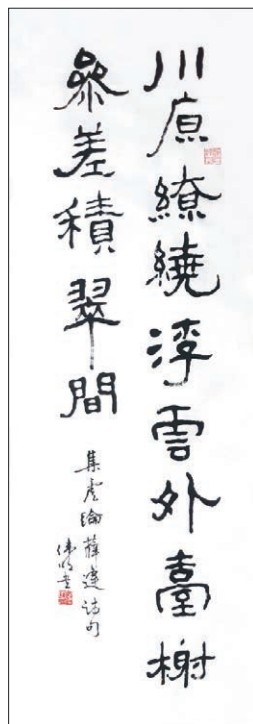 川原繚繞浮雲外臺榭
參差積翠間
集盧綸薛逢詩句